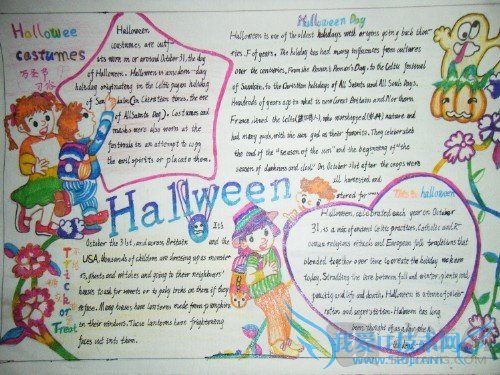 Hallowee
costumes
万圣节
习俗
Halloween
costumes are outf
its worn on or around October 31, the day
of Halloween. Halloween is a modern-day
holiday originating in the Celtic pagan holiday
of Samhain (in Christian times, the eve
of All Saints Day). Costumes and
masks were also worn at the
festivals in an attempt to copy
the evil spirits or placate them.
Halloween Day
Halloween is one of the oldest holidays with origins going back thou
ries of years. The holiday has had many influences from cultures
over the centuries. From the Roman's Pomona's Day, to the Celtic festival
of Samhain, to the Christian holidays of All Saints and All Souls Days.
Hundreds of years ago in what is now Great Britain and Northern
France, lived the Celts. worshipped nature and
had many gods, with the sun god as their favorite. They celebrated
the end of the "season of the sun" and the beginning of "the
season of darkness and cold." On October 31st after the crops were
all harvested and
stored for
Halween
It's
October the 31st, and across Britain and the
USA, thousands of children are dressing up as monster
rs, ghosts and witches and going to their neighbours'
houses to ask for sweets or to play tricks on them if they
refuse. Many houses have lanterns made from pumpkins
in their windows. These lanterns have frightening
faces cut into them.
Trick
or
Treat
This is halloween
Halloween, celebrated each year on October
31, is a mix of ancient Celtic practices, Catholic and R
oman religious rituals and European folk traditions that
blended together over time to create the holiday we know
today. Straddling the line between fall and winter, plenty and
paucity and life and death, Halloween is a time of celeb
ration and superstition. Halloween has long
been thought of as a day when